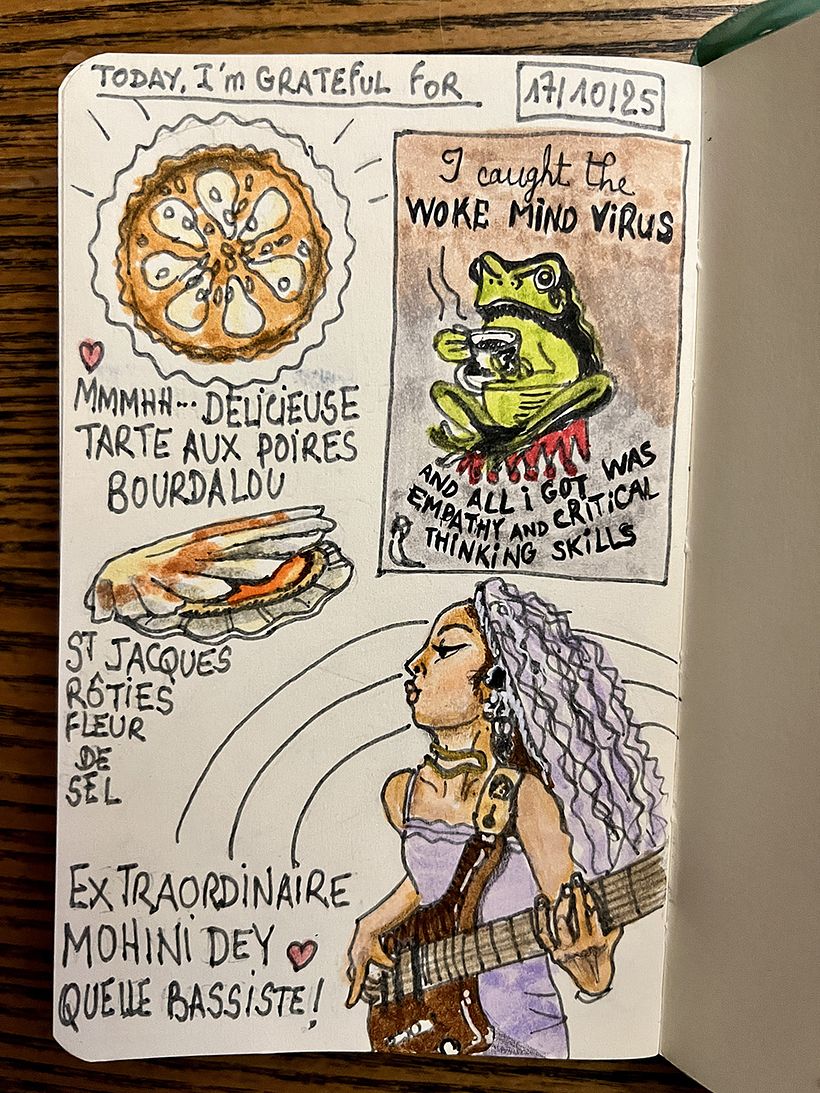 TODAY, I'm GRATEFUL FOR
17/10/25
I caught the
WOKE MIND VIRUS
AND ALL i GOT WAS
EMPATHY AND CRITICAL
THINKING SKILLS
MMMHH... DELICIEUSE
TARTE AUX POIRES
BOURDALOU
ST JACQUES
RÔTIES
FLEUR
DE
SEL
EXTRAORDINAIRE
MOHINI DEY
QUELLE BASSISTE!